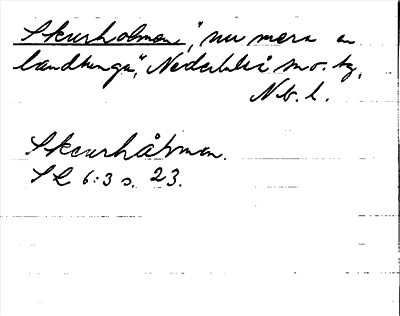 Skurholmen, "nu mera en
landtunga", Nederluleå sn o. tg,
Nb. l.
Skurhålmen.
SL 6:3 s. 23.